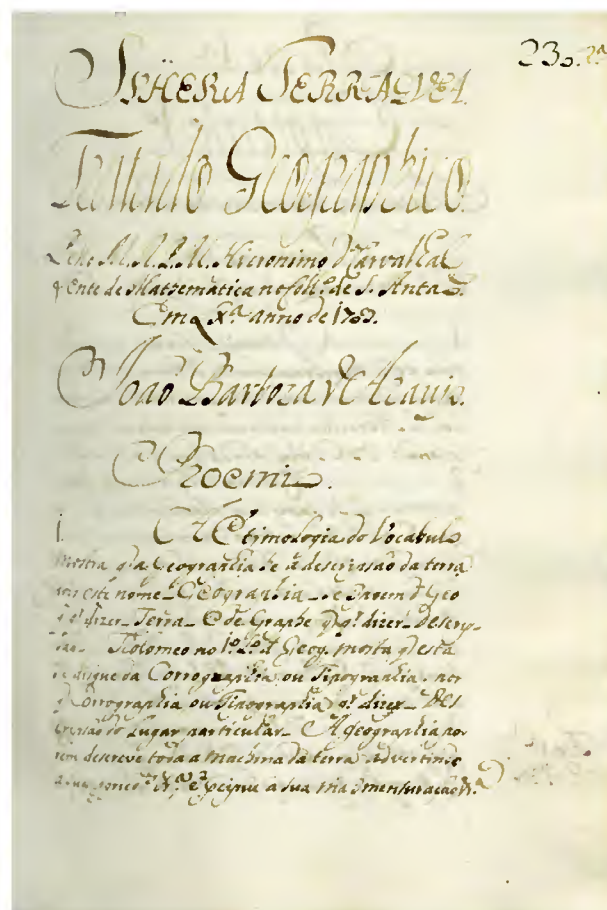 230. 2ª
SPHERA TERRAQUEA.
Tratado Geographico.
Pello M. R. P. M. Hieronimo d Carvalhal
q Ente de Mathematica no Coll.º de S. Antaõ.
Em Lxª anno de
Joaõ Barboza de Araujo.
Proemio.
1. A Etimologia do Vocabulo
mostra q a Geographia he a descripsaõ da terra
este nome Geographia se Geo
q ql dizer Terra e de Graphe q ql dizer Descrip-
Ptolomeo no 1º Lº d Geog. mostra q esta
se distigue da Corrographia ou Tipographia. por
q Corrographia ou Tipographia ql dizer Des
cripsaõ do Lugar particular A geographia po-
rem descreve toda a machina da terra advertindo
a sua a sua